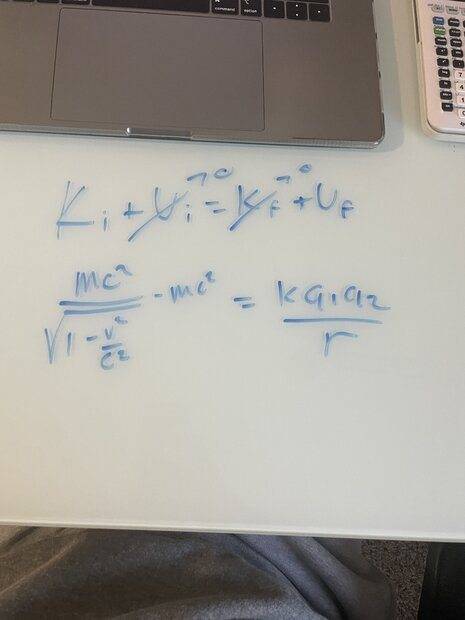 command option
Ki + Ui→0 = Kf→0 + Uf
mc² / √(1 - v²/c²) - mc² = kq₁q₂ / r